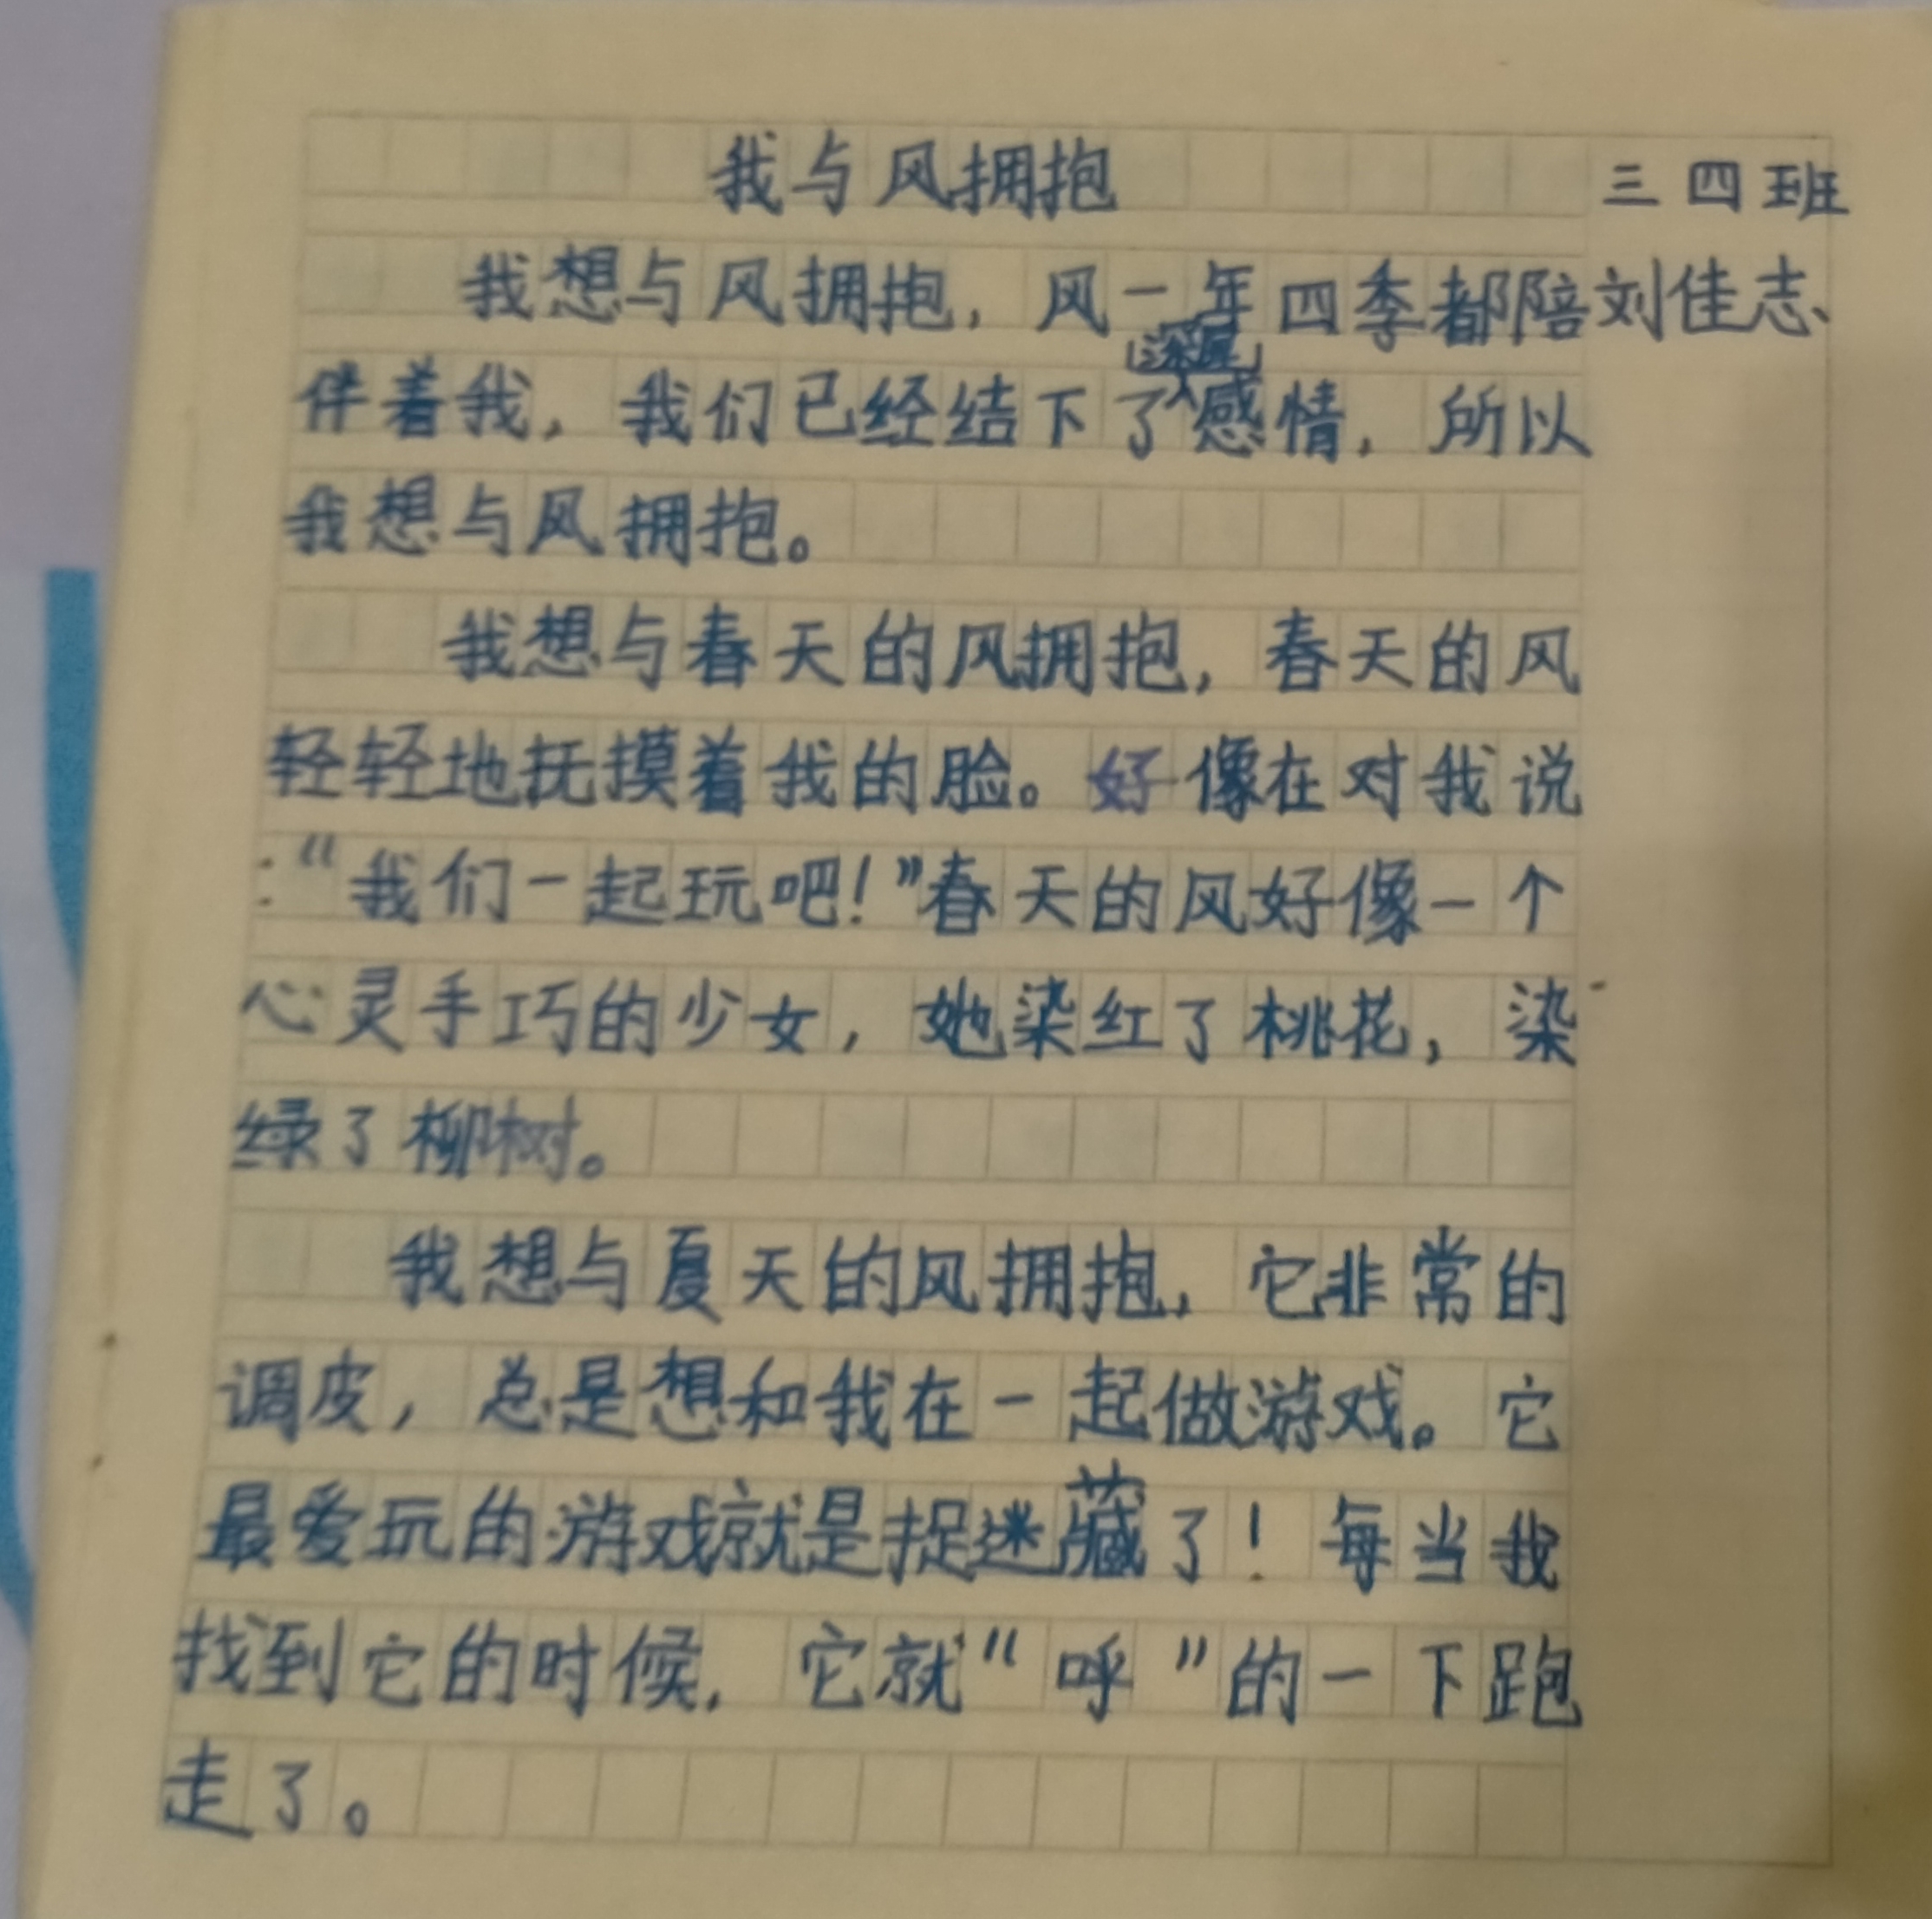 我与风拥抱
三四班
我想与风拥抱，风一年四季都陪
刘佳志
伴着我，我们已经结下了深厚感情，所以
我想与风拥抱。
我想与春天的风拥抱，春天的风
轻轻地抚摸着我的脸。好像在对我说
：“我们一起玩吧！”春天的风好像一个
心灵手巧的少女，她染红了桃花，染
绿了柳树。
我想与夏天的风拥抱，它非常的
调皮，总是想和我在一起做游戏。它
最爱玩的游戏就是捉迷藏了！每当我
找到它的时候，它就“呼”的一下跑
走了。